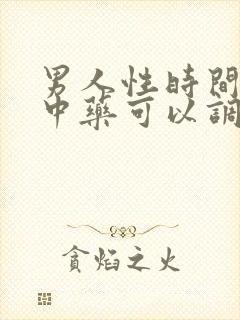 男人性時間
中藥可以調
貪焰之火